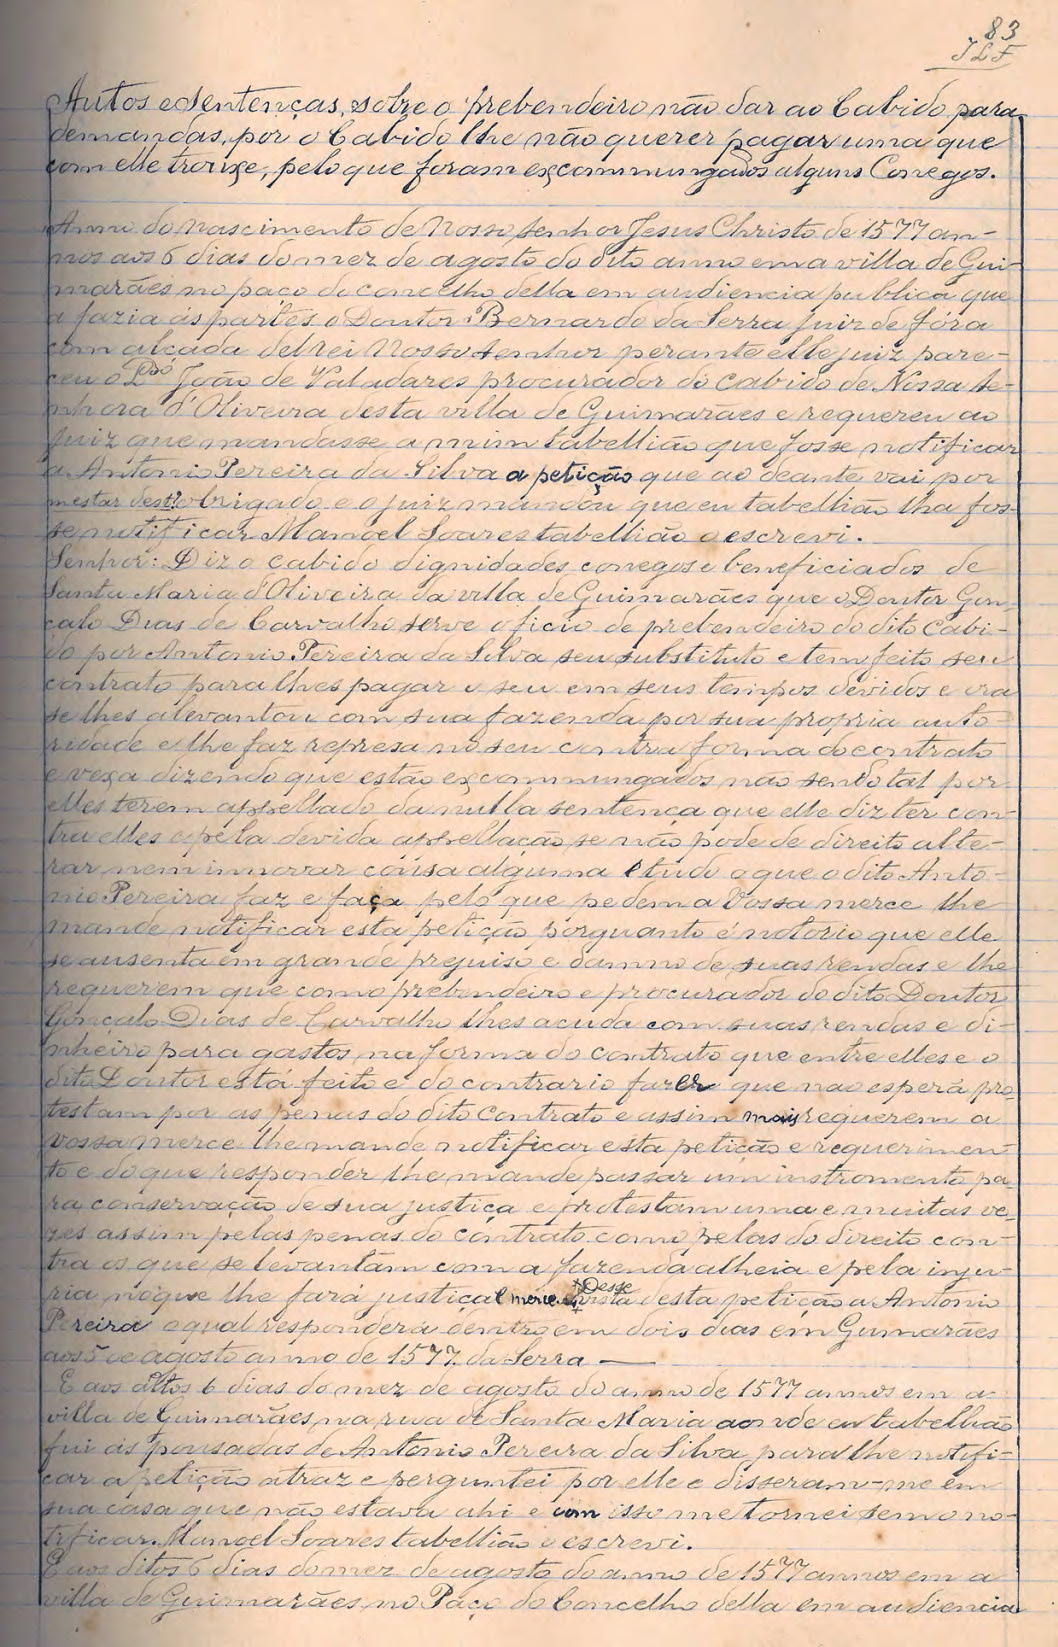 83
JLF
Autos e sentenças, sobre o prebendeiro não dar ao Cabido para
demandas, por o Cabido lhe não querer pagar uma que
com elle trouxe, pelo que foram excommungados alguns Conegos.
Anno do nascimento de Nosso Senhor Jesus Christo de 1577 an-
nos aos 6 dias do mez de agosto do dito anno em a villa de Gui-
marães no paço do concelho della em audiencia publica que
a fazia ás partes o Doutor Bernardo da Serra juiz de fóra
com alçada del rei Nosso Senhor perante elle juiz pare-
ceu o L.do João de Valadares procurador do cabido de Nossa Se-
nhora d'Oliveira desta villa de Guimarães e requereu ao
juiz que mandasse a mim tabellião que fosse notificar
a Antonio Pereira da Silva a petição que ao deante vai por
m'estar destº obrigado e o juiz mandou que eu tabellião lha fos-
se notificar Manoel Soares tabellião o escrevi.
Senhor: Diz o cabido dignidades conegos e beneficiados de
Santa Maria d'Oliveira da villa de Guimarães que o Doutor Gon-
çalo Dias de Carvalho serve oficio de prebendeiro do dito Cabi-
do por Antonio Pereira da Silva seu substituto e tem feito seu
contrato para lhes pagar o seu em seus tempos devidos e ora
se lhes alevantou com sua fazenda por sua propria auto-
ridade e lhe faz represa no seu contra forma do contrato
e vexa dizendo que estão excommungados não sendo tal por
elles terem appellado da nulla sentença que elle diz ter con-
tra elles e pela devida appellação se não pode de direito alte-
rar nem innovar cousa alguma e tudo o que o dito Anto-
nio Pereira faz e faça pelo que pedem a Vossa merce lhe
mande notificar esta petição porquanto é notorio que elle
se ausenta em grande prejuiso e damno de suas rendas e lhe
requerem que como prebendeiro e procurador do dito Doutor
Gonçalo Dias de Carvalho lhes acuda com suas rendas e di-
nheiro para gastos na forma do contrato que entre elles e o
dito Doutor está feito e do contrario fazer que não espera pro-
testam por as penas do dito contrato e assim mais requerem a
vossa merce lhe mande notificar esta petição e requerimen-
to e do que responder lhe mande passar um instromento pa-
ra conservação de sua justiça e protestam uma e muitas ve-
zes assim pelas penas do contrato como pelas do direito con-
tra os que se levantam com a fazenda alheia e pela inju-
ria no que lhe fará justiça e merce. Desse vista desta petição a Antonio
Pereira o qual responderá dentro em dois dias em Guimarães
aos 5 de agosto anno de 1577. da Serra —
E aos ditos 6 dias do mez de agosto do anno de 1577 annos em a
villa de Guimarães, na rua de Santa Maria aonde eu tabellião
fui ás pousadas de Antonio Pereira da Silva para lhe notifi-
car a petição atraz e perguntei por elle e disseram-me em
sua casa que não estava ahi e com isso me tornei sem o no-
tificar. Manoel Soares tabellião o escrevi.
E aos ditos 6 dias do mez de agosto do anno de 1577 annos em a
villa de Guimarães, no Paço do Concelho della em audiencia